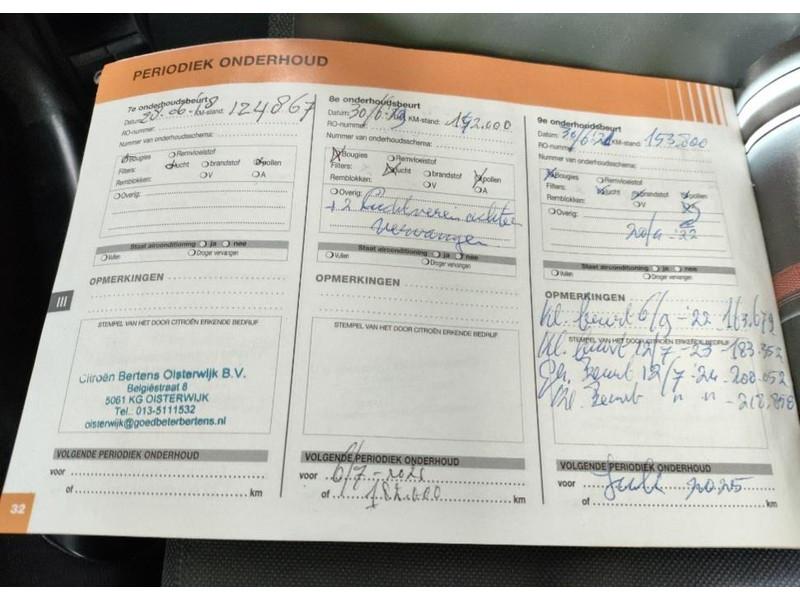 PERIODIEK ONDERHOUD
7e onderhoudsbeurt
Datum: 28-06-'18 KM-stand: 124867
RO-nummer:
Nummer van onderhoudsschema:
Bougies Remvloeistof
Filters: lucht brandstof pollen
Remblokken: V A
Overig:
Staat airconditioning ja nee
Vullen Droger vervangen
OPMERKINGEN
STEMPEL VAN HET DOOR CITROËN ERKENDE BEDRIJF
Citroën Bertens Oisterwijk B.V.
Belgiëstraat 8
5061 KG OISTERWIJK
Tel.. 013-5111532
oisterwijk@goedbeterbertens.nl
VOLGENDE PERIODIEK ONDERHOUD
voor
of km
8e onderhoudsbeurt
Datum: KM-stand:
RO-nummer:
Nummer van onderhoudsschema:
Bougies Remvloeistof
Filters: lucht brandstof pollen
Remblokken: V A
Overig:
+ 2 Luchtveren achter
vervangen
Staat airconditioning ja nee
Vullen Droger vervangen
OPMERKINGEN
STEMPEL VAN HET DOOR CITROËN ERKENDE BEDRIJF
VOLGENDE PERIODIEK ONDERHOUD
voor 6/7-2021
of 182.000 km
9e onderhoudsbeurt
Datum: 30/6-21 KM-stand: 153.800
RO-nummer:
Nummer van onderhoudsschema:
Bougies Remvloeistof
Filters: lucht brandstof pollen
Remblokken: V A
Overig:
Staat airconditioning ja nee
Vullen Droger vervangen
OPMERKINGEN
Kl. beurt 6/9-'22-163.679
STEMPEL VAN HET DOOR CITROËN ERKENDE BEDRIJF
Kl. beurt 12/7-23-183.352
Gr. Beurt 12/7-24-208.052
Kl. Beurt " " -218.858
VOLGENDE PERIODIEK ONDERHOUD
voor 2025
of km
III
32